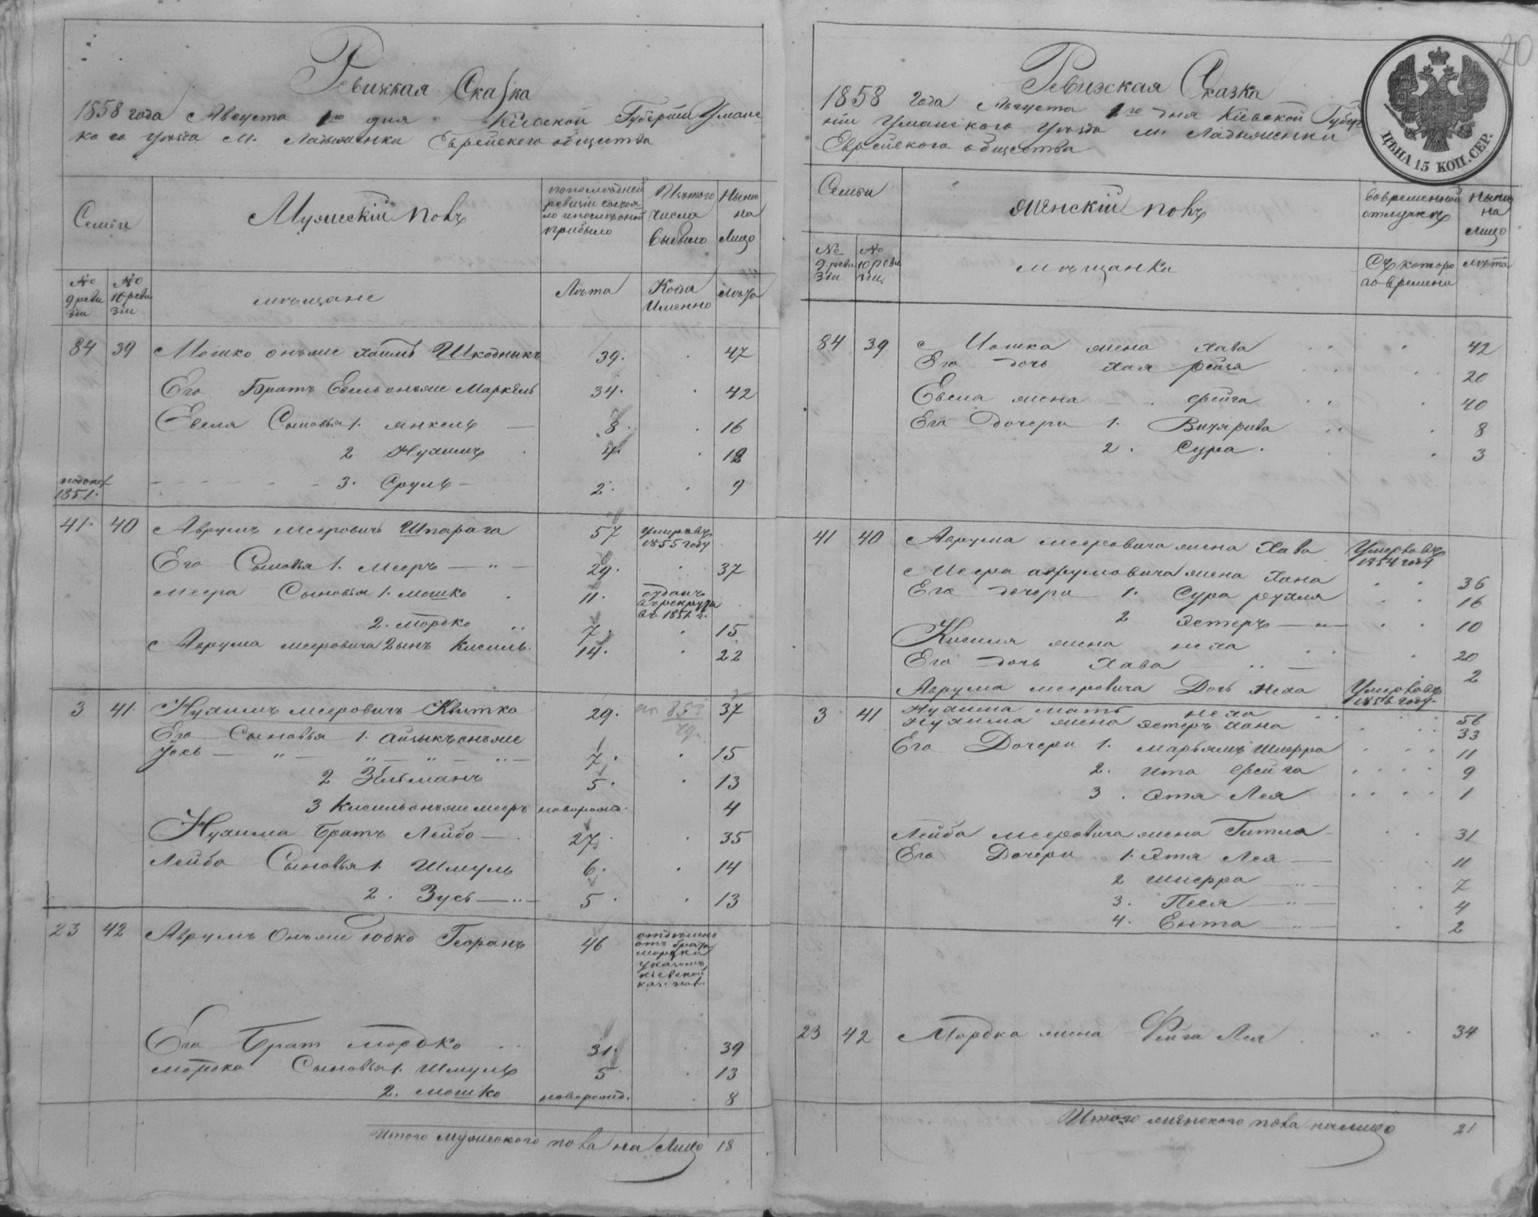 Ревижская Сказка
1858 года Августа 1го дня Кіевской Губерніи Уманс
каго уѣзда м. Ладыженки Еврейского общества
Семьи
Мужескій полъ
по последней ревизіи состояло и после оной прибыло
Изъ того числа выбыло
Ныне на лицо
№ 9 ревизіи
№ 10 ревизіи
мѣщане
Лѣта
Когда именно
Лѣта
84 39 Мошко онъ же Хаимъ Шкодникъ 39. 47
Его Братъ Евель онъ же Маркель 34. 42
Евеля Сыновья 1. Янкель 8. 16
2 Нухимъ 4. 12
1851. 3. Сруль 2. 9
41. 40 Аврумъ Мееровичъ Шпарага 57 умеръ въ 1855 году
Его Сыновья 1. Мееръ 29. 37
Меера Сыновья 1. Мошко 11. отданъ в рекруты въ 1852 г.
2. Мордко 7. 15
Аврума Мееровича 2 сынъ Кисиль 14. 22
3 41. Нухимъ Мееровичъ Квитко 29. 37
Его Сыновья 1. Айзыкъ онъ же
Іось 7. 15
2 Зельманъ 5. 13
3 Кисиль онъ же Мееръ новорожд. 4
Нухима Братъ Лейбо 27. 35
Лейба Сыновья 1. Шмуль 6. 14
2. Зусь 5. 13
23 42 Аврумъ Онъ же Юдко Геранъ 46 отдѣленъ отъ брата Мордка указомъ Кіевской каз. пал.
Его Брат Мордко 31. 39
Мордка Сыновья 1. Шмуль 5 13
2. Мошко новорожд. 8
Итого мужеского пола на Лицо 18
20
Ревижская Сказка
1858 года Августа 1го дня Кіевской Губер
ніи Уманского Уѣзда м. Ладыженки
Еврейского общества
ЦѢНА 15 КОП. СЕР.
Семьи
Женскій полъ
во временной отлучкѣ
Ныне на лицо
№ 9 ревизіи
№ 10 ревизіи
мѣщанки
Съ котораго времени
лѣта
84 39 Мошка жена Хава 42
Его дочь Хая Рейзя 20
Евеля жена Фейга 40
Его Дочери 1. 8
2. Сура 3
41 40 Аврума Мееровича жена Хава Умерла въ 1854 году
Меера Аврумовича жена Хана 36
Его дочери 1. Сура Рухля 16
2 Эстеръ 10
Кисиля жена Неха 20
Его дочь Хава 2
Аврума Мееровича Дочь Неха Умерла въ 1856 году
3 41 Нухима мать Неха 56
Нухима жена Эстеръ Хана 33
Его Дочери 1. Марьямъ Шифра 11
2. Ита Фейга 9
3. Этя Лея 1
Лейба Мееровича жена Гитля 31
Его Дочери 1. Этя Лея 11
2 Шифра 7
3. Песя 4
4. Ента 2
23 42 Мордка жена Фейга Лея 34
Итого женского пола на лицо 21